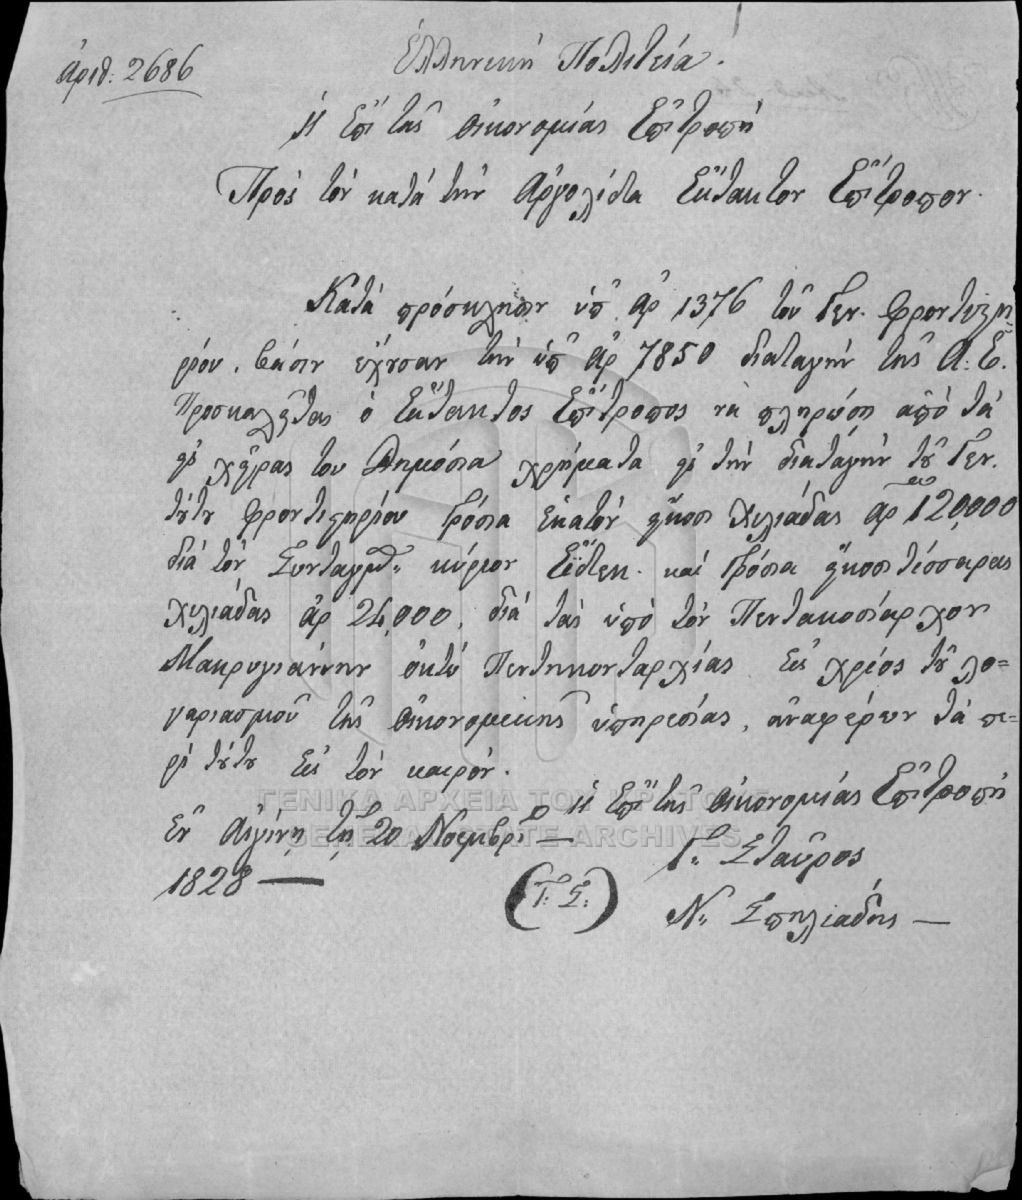 ἀριθ: 2686
Ἑλληνική Πολιτεία.
Ἡ ἐπί τῆς Οἰκονομίας Ἐπιτροπή
Πρός τόν κατά τήν Ἀργολίδα Ἔκτακτον Ἐπίτροπον.
Κατά πρόσκλησιν ὑπ' ἀρ 1376 τοῦ Γεν. Φροντιστη-
ρίου, βάσιν ἔχουσαν τήν ὑπ' ἀρ 7850 διαταγήν τῆς Α. Ε.
Προσκαλεῖται ὁ Ἔκτακτος Ἐπίτροπος νά πληρώσῃ ἀπό τά
εἰς χεῖρας του Δημόσια χρήματα εἰς τήν διαταγήν τοῦ Γεν.
τούτου Φροντιστηρίου Γρόσια ἑκατόν εἴκοσι χιλιάδας ἀρ 120,000
διά τόν Συνταγμ. κύριον Ἔϊδεκ. καί Γρόσια εἴκοσι τέσσαρας
χιλιάδας ἀρ 24,000, διά τάς ὑπό τόν Πεντακοσίαρχον
Μακρυγιάννην ὀκτώ Πεντηκονταρχίας εἰς χρέος τοῦ λο-
γαριασμοῦ τῆς Οἰκονομικῆς ὑπηρεσίας, ἀναφέρων τά πε-
ρί τούτου εἰς τόν καιρόν.
Ἐν Αἰγίνῃ τῇ 20 Νοεμβρίο
1828
Ἡ ἐπί τῆς Οἰκονομίας Ἐπιτροπή
Γ. Σταῦρος
(Τ. Σ.)
Ν. Σπηλιάδης
ΓΕΝΙΚΑ ΑΡΧΕΙΑ ΤΟΥ ΚΡΑΤΟΥΣ
GENERAL STATE ARCHIVES